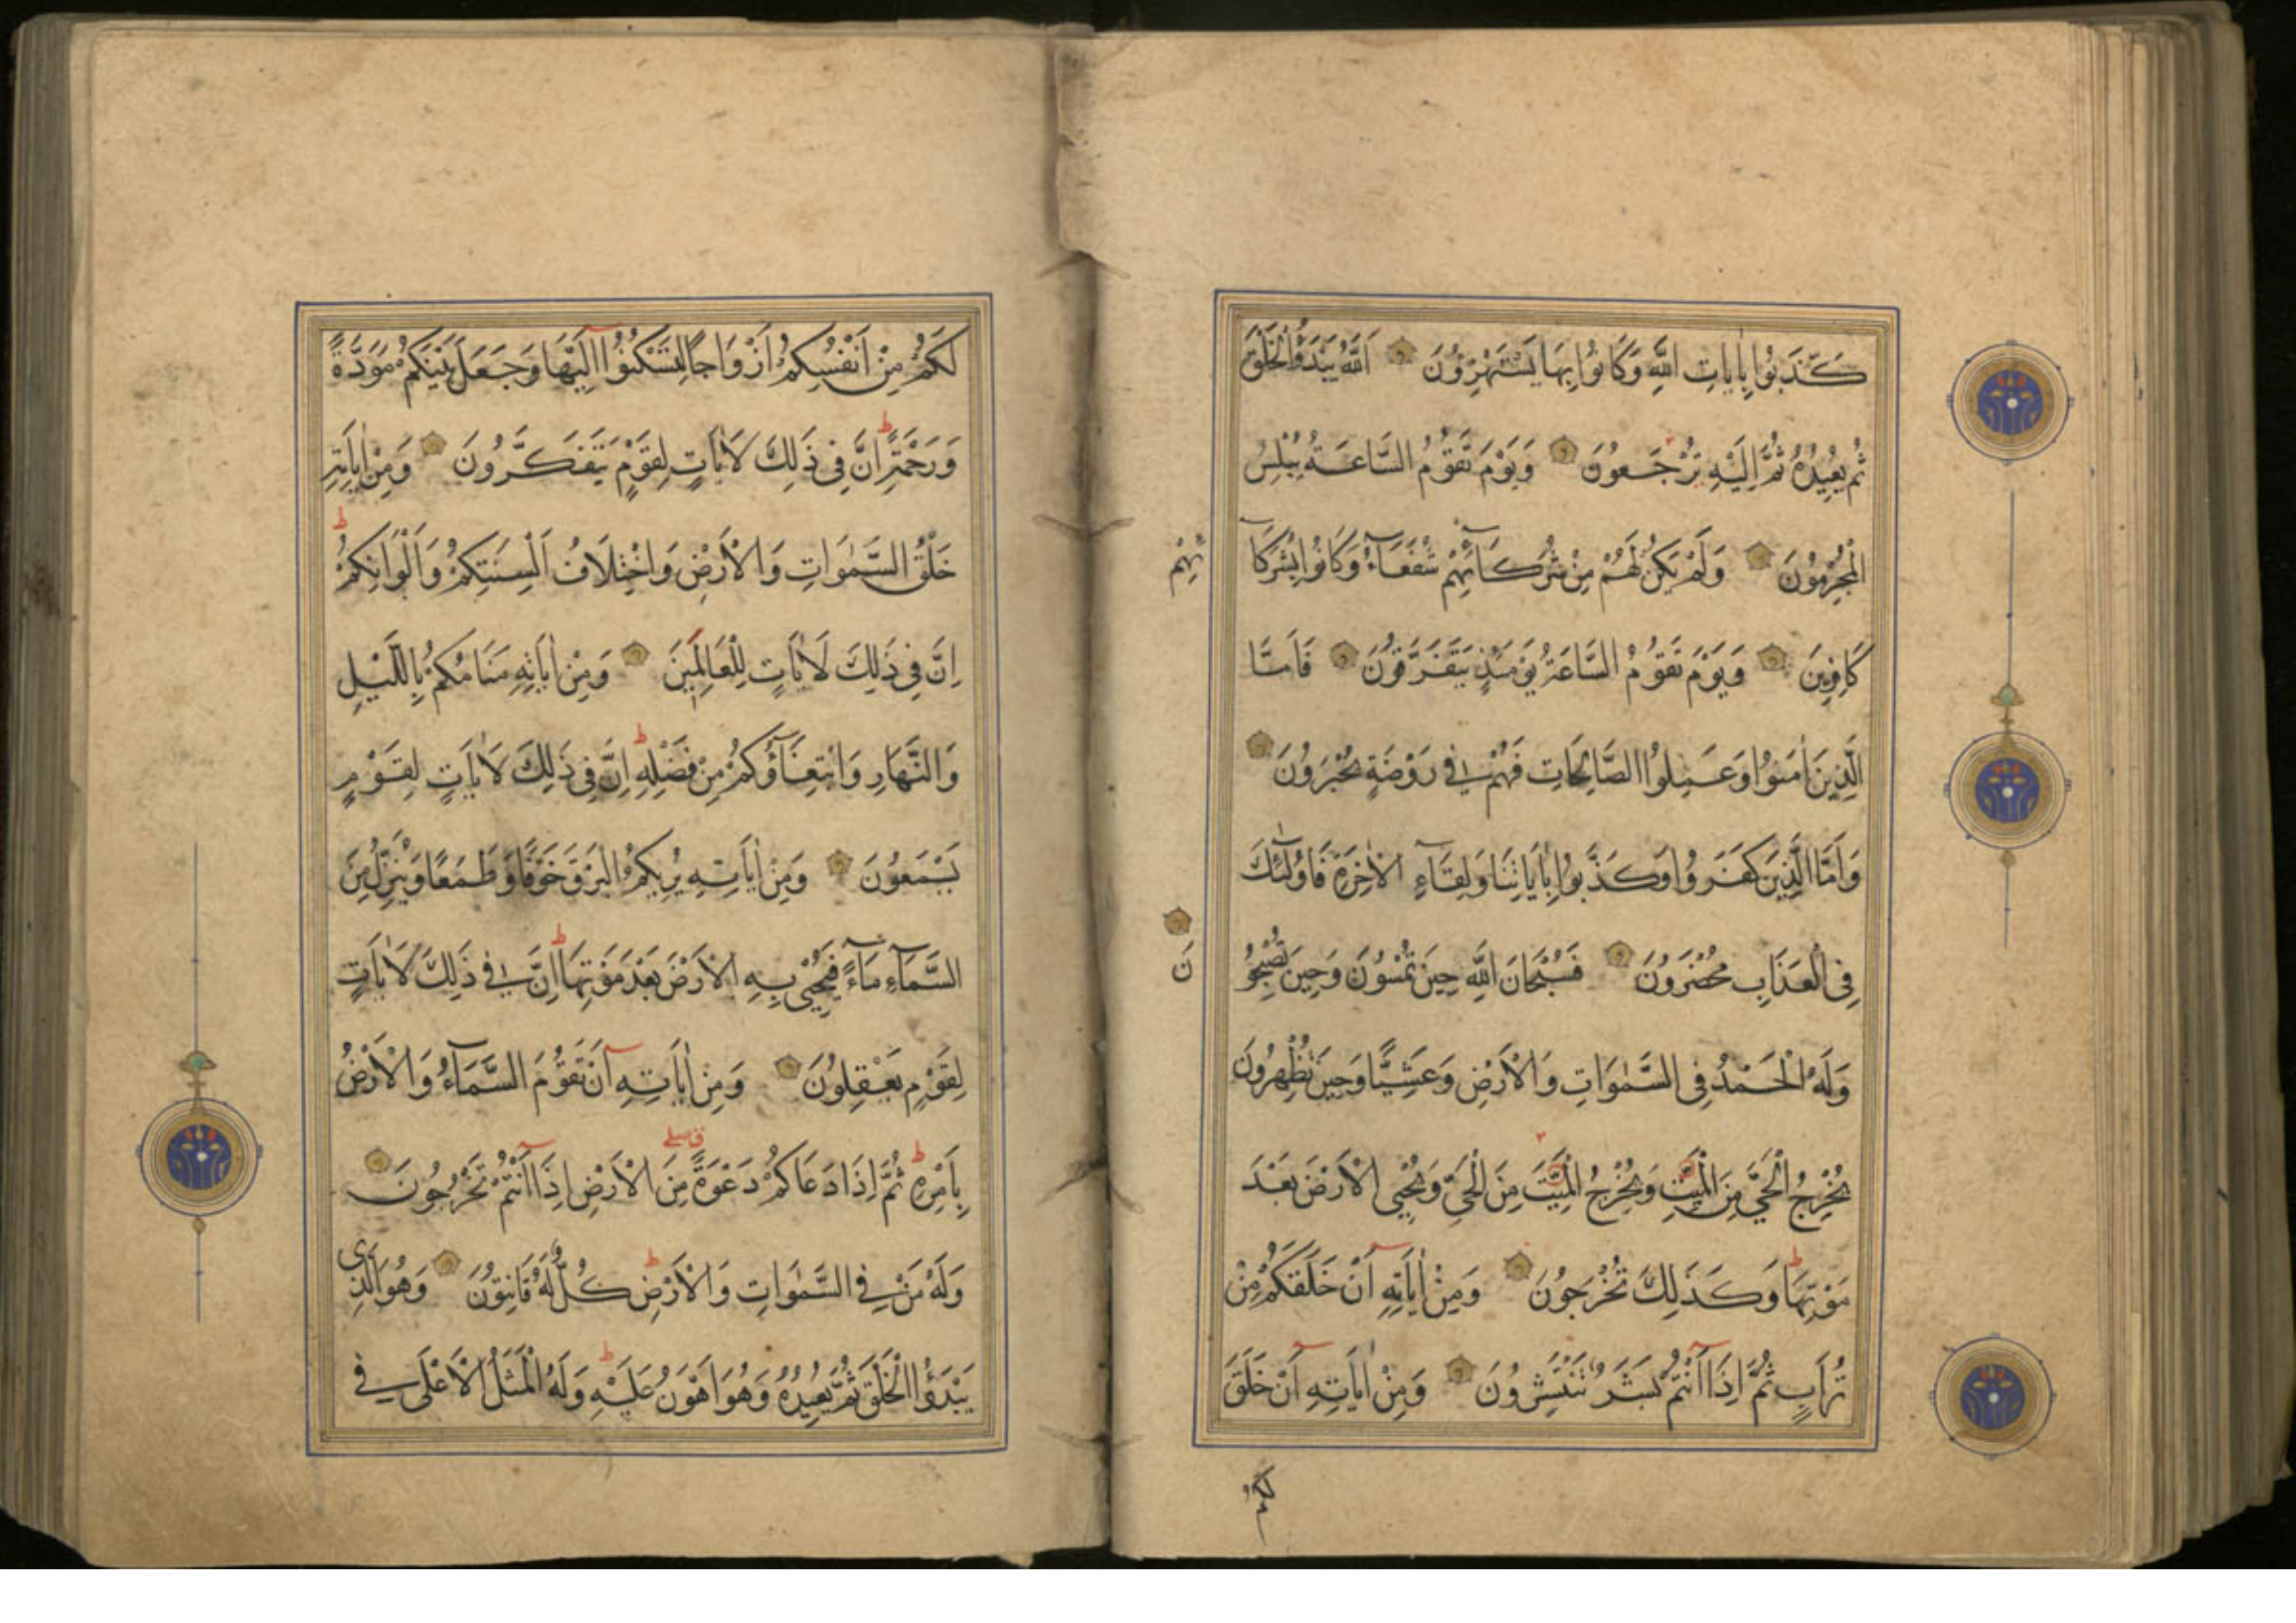 كَذَّبُوا بِاٰيَاتِ اللّٰهِ وَكَانُوا بِهَا يَسْتَهْزِؤُنَ اَللّٰهُ يَبْدَؤُا الْخَلْقَ
ثُمَّ يُعِيْدُهُ ثُمَّ اِلَيْهِ تُرْجَعُونَ وَيَوْمَ تَقُوْمُ السَّاعَةُ يُبْلِسُ
الْمُجْرِمُوْنَ وَلَمْ يَكُنْ لَهُمْ مِنْ شُرَكَآئِهِمْ شُفَعَآءُ وَكَانُوا بِشُرَكَآ
ئِهِمْ
كَافِرِيْنَ وَيَوْمَ تَقُوْمُ السَّاعَةُ يَوْمَئِذٍ يَتَفَرَّقُوْنَ فَاَمَّا
الَّذِيْنَ اٰمَنُوْا وَعَمِلُوْا الصَّالِحَاتِ فَهُمْ فِي رَوْضَةٍ يُحْبَرُوْنَ
وَاَمَّا الَّذِيْنَ كَفَرُوْا وَكَذَّبُوْا بِاٰيَاتِنَا وَلِقَآءِ الْاٰخِرَةِ فَاُولٰئِكَ
فِى الْعَذَابِ مُحْضَرُوْنَ فَسُبْحَانَ اللّٰهِ حِيْنَ تُمْسُوْنَ وَحِيْنَ تُصْبِحُو
نَ
وَلَهُ الْحَمْدُ فِى السَّمٰوَاتِ وَالْاَرْضِ وَعَشِيًّا وَحِيْنَ تُظْهِرُوْنَ
يُخْرِجُ الْحَيَّ مِنَ الْمَيِّتِ وَيُخْرِجُ الْمَيِّتَ مِنَ الْحَيِّ وَيُحْيِي الْاَرْضَ بَعْدَ
مَوْتِهَا وَكَذٰلِكَ تُخْرَجُوْنَ وَمِنْ اٰيَاتِهِ اَنْ خَلَقَكُمْ مِنْ
تُرَابٍ ثُمَّ اِذَا اَنْتُمْ بَشَرٌ تَنْتَشِرُوْنَ وَمِنْ اٰيَاتِهِ اَنْ خَلَقَ
لكم
لَكُمْ مِنْ اَنْفُسِكُمْ اَزْوَاجًا لِتَسْكُنُوْا اِلَيْهَا وَجَعَلَ بَيْنَكُمْ مَوَدَّةً
وَرَحْمَةً اِنَّ فِي ذٰلِكَ لَاٰيَاتٍ لِقَوْمٍ يَتَفَكَّرُوْنَ وَمِنْ اٰيَاتِهِ
خَلْقُ السَّمٰوَاتِ وَالْاَرْضِ وَاخْتِلَافُ اَلْسِنَتِكُمْ وَاَلْوَانِكُمْ
اِنَّ فِي ذٰلِكَ لَاٰيَاتٍ لِلْعَالِمِيْنَ وَمِنْ اٰيَاتِهِ مَنَامُكُمْ بِاللَّيْلِ
وَالنَّهَارِ وَابْتِغَآؤُكُمْ مِنْ فَضْلِهِ اِنَّ فِي ذٰلِكَ لَاٰيَاتٍ لِقَوْمٍ
يَسْمَعُوْنَ وَمِنْ اٰيَاتِهِ يُرِيْكُمُ الْبَرْقَ خَوْفًا وَطَمَعًا وَيُنَزِّلُ مِنَ
السَّمَآءِ مَآءً فَيُحْيِي بِهِ الْاَرْضَ بَعْدَ مَوْتِهَا اِنَّ فِي ذٰلِكَ لَاٰيَاتٍ
لِقَوْمٍ يَعْقِلُوْنَ وَمِنْ اٰيَاتِهِ اَنْ تَقُوْمَ السَّمَآءُ وَالْاَرْضُ
بِاَمْرِهِ ثُمَّ اِذَا دَعَاكُمْ دَعْوَةً مِنَ الْاَرْضِ اِذَا اَنْتُمْ تَخْرُجُوْنَ
وَلَهُ مَنْ فِي السَّمٰوَاتِ وَالْاَرْضِ كُلٌّ لَهُ قَانِتُوْنَ وَهُوَ الَّذِى
يَبْدَؤُا الْخَلْقَ ثُمَّ يُعِيْدُهُ وَهُوَ اَهْوَنُ عَلَيْهِ وَلَهُ الْمَثَلُ الْاَعْلٰى فِي